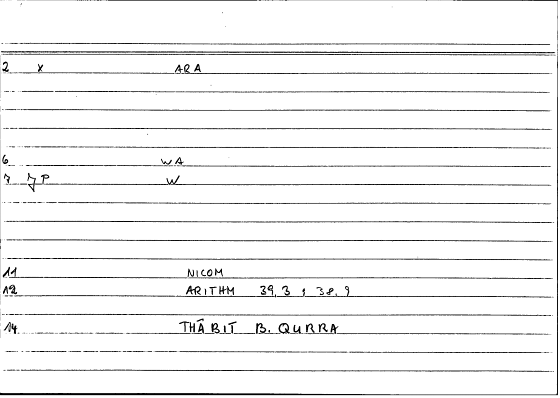 2 x ARA
6 WA
7 P W
11 NICOM
12 ARITHM 39,3 ; 38,9
14 THĀBIT B. QURRA